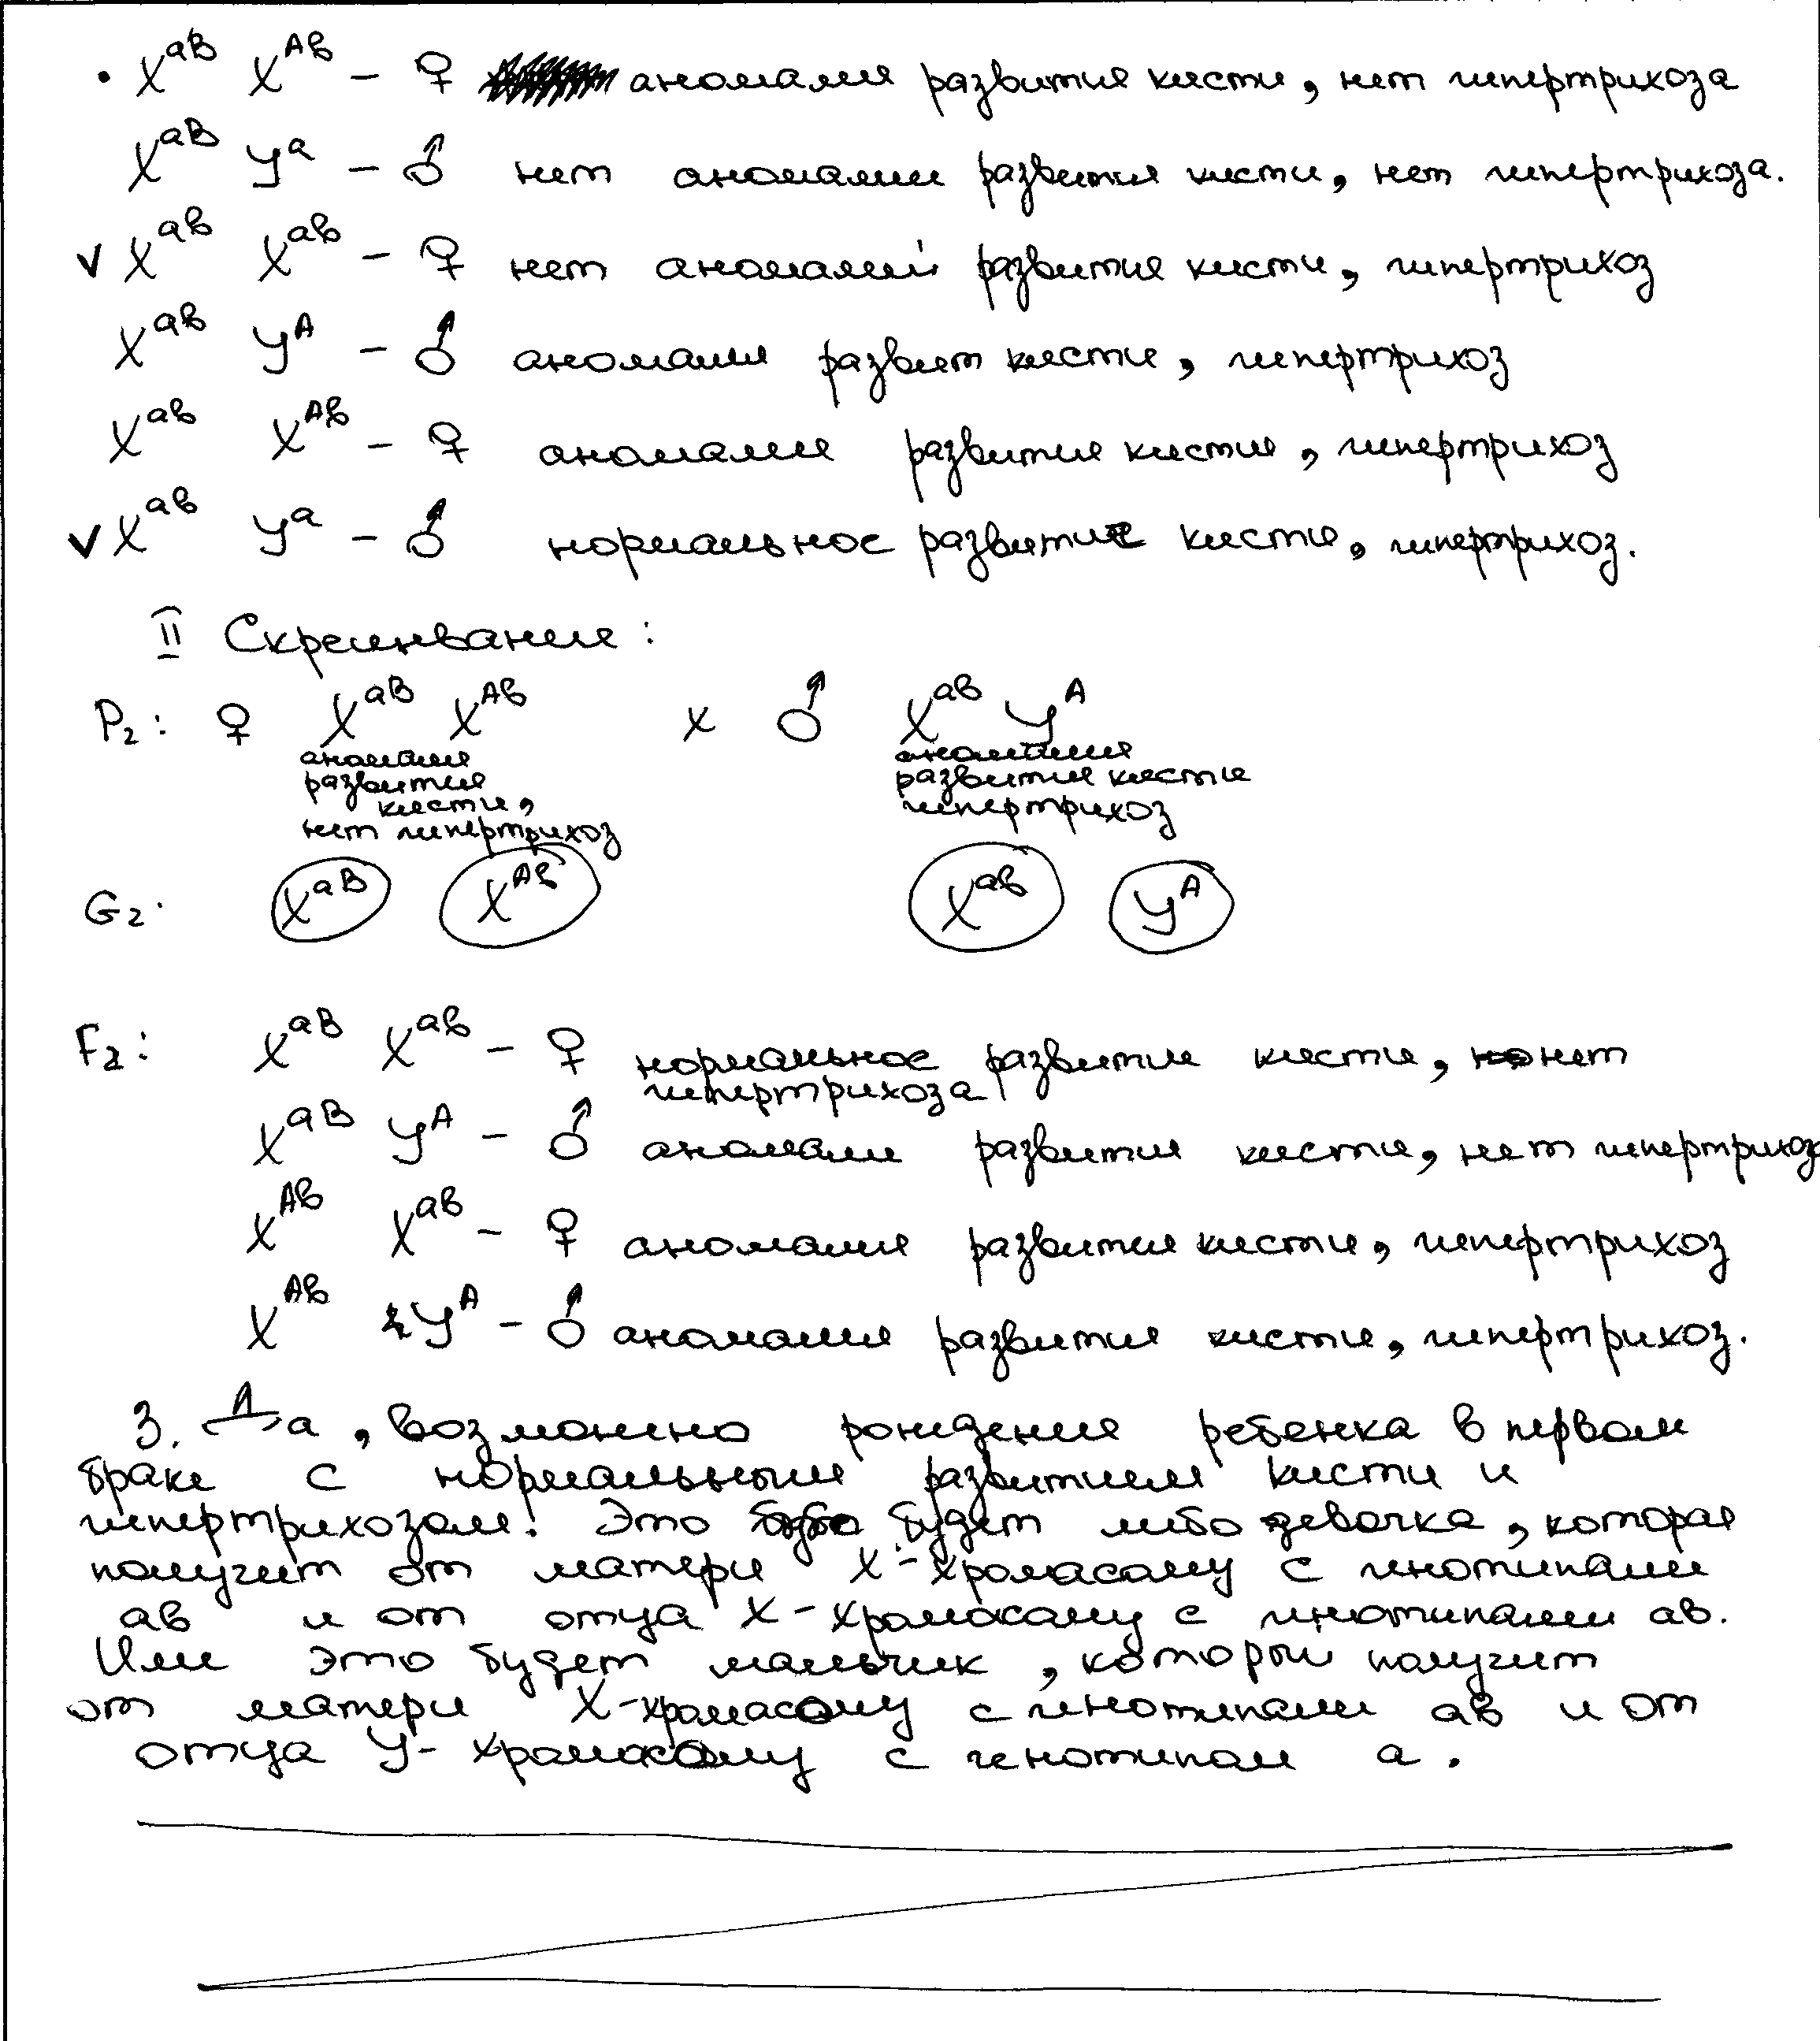 • X^aB X^Ab – ♀ аномалия развития кисти, нет гипертрихоза
X^aB У^a – ♂ нет аномалии развития кисти, нет гипертрихоза.
V X^ab X^ab – ♀ нет аномалий развития кисти, гипертрихоз
X^ab У^A – ♂ аномалия развит кисти, гипертрихоз
X^ab X^Ab – ♀ аномалия развития кисти, гипертрихоз
V X^ab У^a – ♂ нормальное развитие кисти, гипертрихоз.
II Скрещивание:
P₂: ♀ X^aB X^Ab x ♂ X^ab У^A
аномалия аномалия
развития развития кисти
кисти, гипертрихоз
нет гипертрихоз
G₂. X^aB X^Ab X^ab У^A
F₂: X^aB X^ab – ♀ нормальное развитие кисти, нет
гипертрихоза
X^aB У^A – ♂ аномалии развития кисти, нет гипертрихоз
X^Ab X^ab – ♀ аномалия развития кисти, гипертрихоз
X^Ab У^A – ♂ аномалия развития кисти, гипертрихоз.
3. Да, возможно рождения ребенка в первом
браке с нормальным развитием кисти и
гипертрихозом. Это будет либо девочка, которая
получит от матери X-хромасому с генотипами
ав и от отца X-хромасому с генотипами ав.
Или это будет мальчик, который получит
от матери X-хромасому с генотипами ав и от
отца У-хромасому с генотипом а.